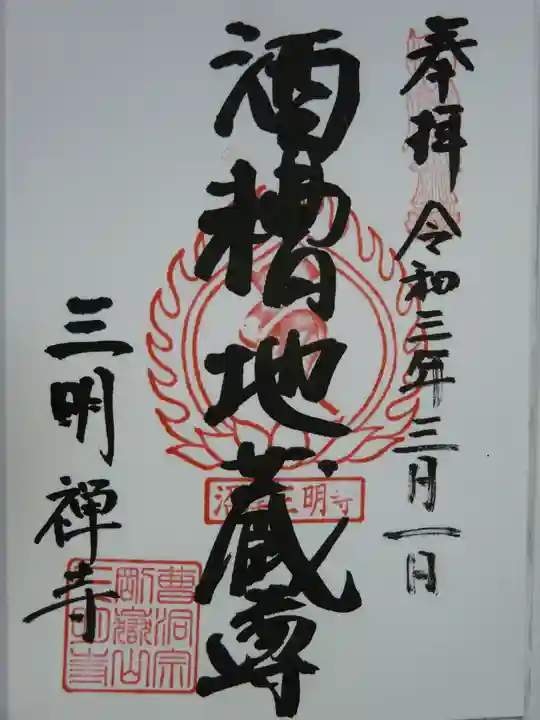 奉拝 令和三年三月一日
酒糟地蔵尊
三明禅寺
沼津三明寺
曹洞宗
剛嶽山
三明寺